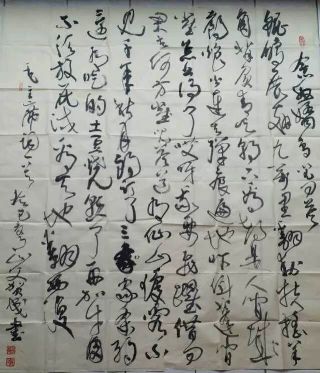 念奴娇鸟儿问答
鲲鹏展翅九万里翻动扶摇羊
角背负青天朝下看都是人间城
郭炮火连天弹痕遍地吓倒蓬间
雀怎么得了哎呀我要飞跃借问
君去何方雀儿答道有仙山琼阁不
见前年秋月朗订了三家条约
还有吃的土豆烧熟了再加牛肉
不须放屁试看天地翻覆
毛主席词一首
书